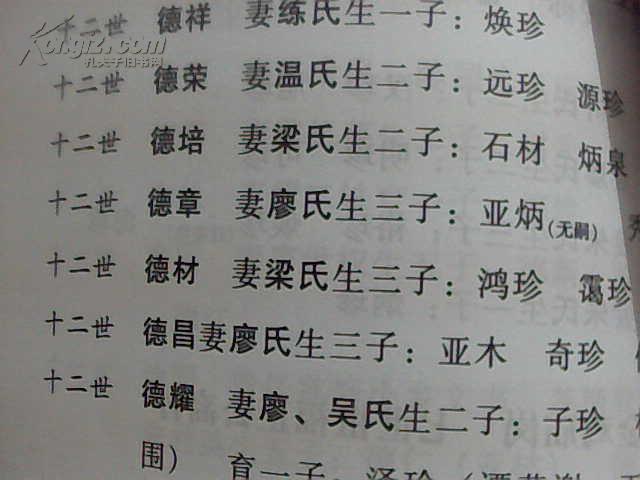 十二世 德祥 妻练氏生一子：焕珍
kongfz.com
孔夫子旧书网
十二世 德荣 妻温氏生二子：远珍 源珍
十二世 德培 妻梁氏生二子：石材 炳泉
十二世 德章 妻廖氏生三子：亚炳(无嗣)
十二世 德材 妻梁氏生三子：鸿珍 霭珍
十二世 德昌妻廖氏生三子：亚木 奇珍
十二世 德耀 妻廖、吴氏生二子：子珍
围） 育一子：泽珍